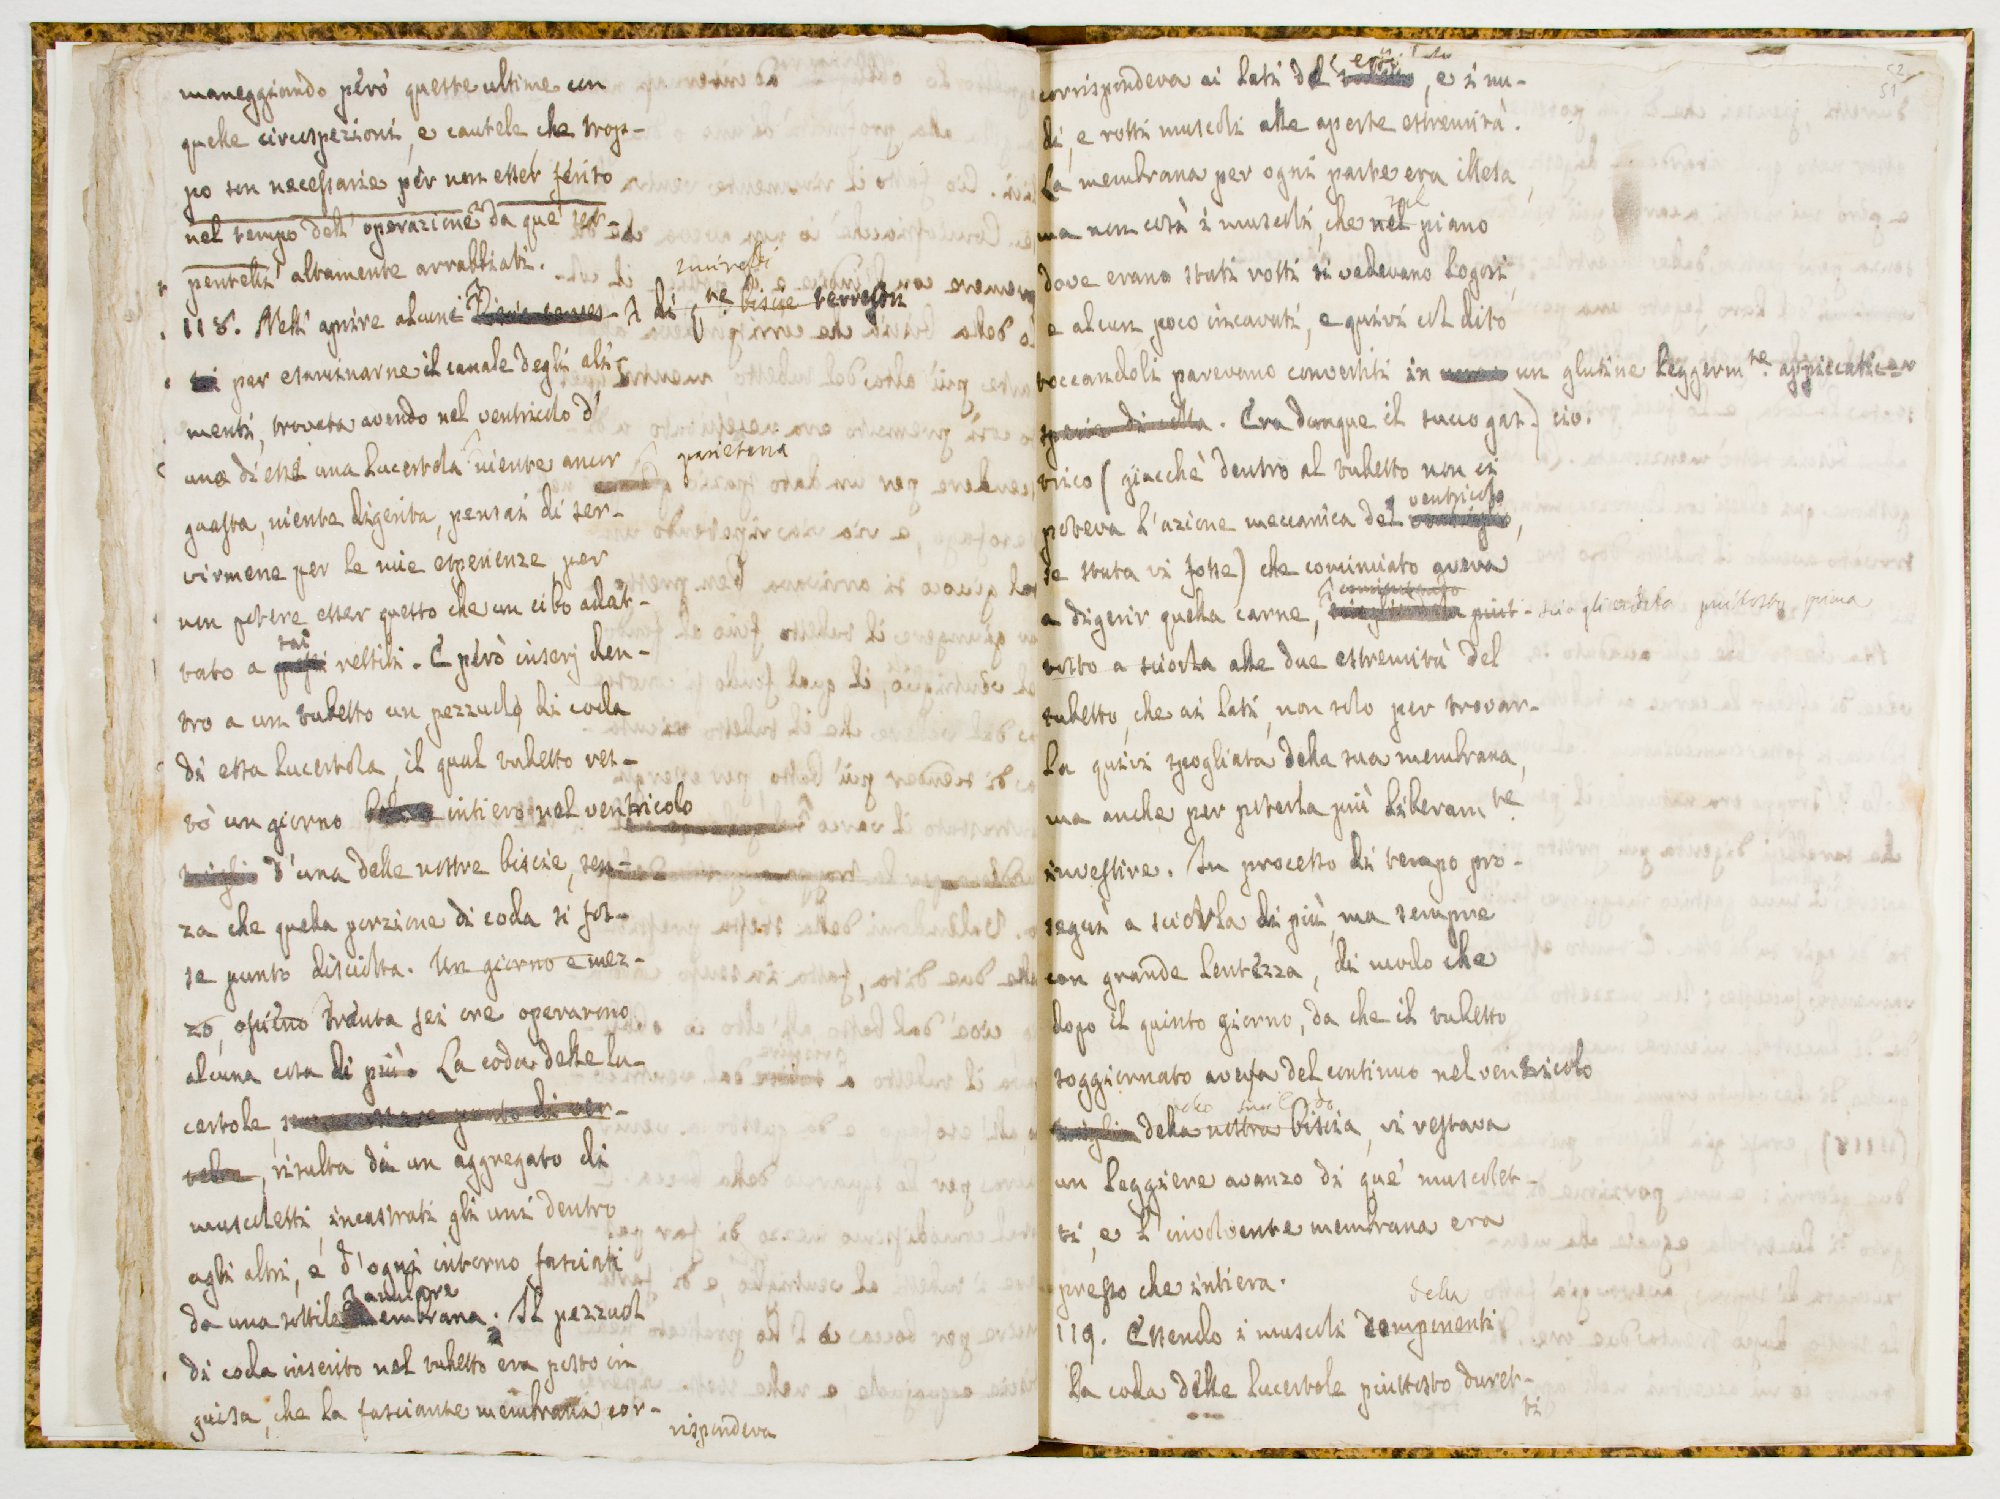 maneggiando però queste ultime con
quelle circospezioni, e cautele che trop-
po son necessarie per non esser ferito
nel tempo dell' operazione da que' ser-
pentelli altamente arrabbiati.
simili
118. Nell' aprire alcuni di q.te biscie terrestri
per esaminarne il canale degli ali-
menti, trovata avendo nel ventricolo d'
una di esse una Lucertola niente ancor
parietana
guasta, niente digerita, pensai di ser-
virmene per le mie esperienze per
non potere esser questo che un cibo adat-
tato a tai rettili. E però inserj den-
tro a un tubetto un pezzuolo di coda
di essa Lucertola, il qual tubetto res-
tò un giorno intiero nel ventricolo
d'una delle nostre biscie, sen-
za che quella porzione di coda si fos-
se punto disciolta. Un giorno e mez-
zo, ossieno trenta sei ore operarono
alcuna cosa di più. La coda delle lu-
certole, senza
risulta di un aggregato di
muscoletti, incastrati gli uni dentro
agli altri, e d'ogni intorno fasciati
da una sottile membrana. Il pezzuol
di coda inserito nel tubetto era posto in
guisa, che la fasciante membrana cor-
rispondeva
52
51
corrispondeva ai lati del tubetto, e i nu-
di, e rotti muscoli alle aperte estremità.
La membrana per ogni parte era illesa,
sul
ma non così i muscoli, che nel piano
dove erano stati rotti si vedevano logori,
e alcun poco incavati, e quivi col dito
toccandoli parevano convertiti in un glutine leggerm.te appiccaticcio.
specie di colla. Era dunque il succo gas-
trico (giacchè dentro al tubetto non ci
ventricolo
poteva l'azione meccanica del
se stata vi fosse) che cominciato aveva
cominciando
a digerir quella carne, piut- sciogliendola piuttosto prima
tosto a sciorla alle due estremità del
tubetto, che ai lati, non solo per trovar-
la quivi spogliata della sua membrana,
ma anche per poterla più liberam.te
investire. In processo di tempo pro-
seguì a sciorla di più, ma sempre
con grande lentezza, di modo che
dopo il quinto giorno, da che il tubetto
soggiornato aveva del continuo nel ventricolo
della nostra biscia, vi restava
un leggiere avanzo di que' muscolet-
ti, e l'involvente membrana era
presso che intiera.
della
119. Essendo i muscoli componenti
la coda delle Lucertole piuttosto duret-
ti